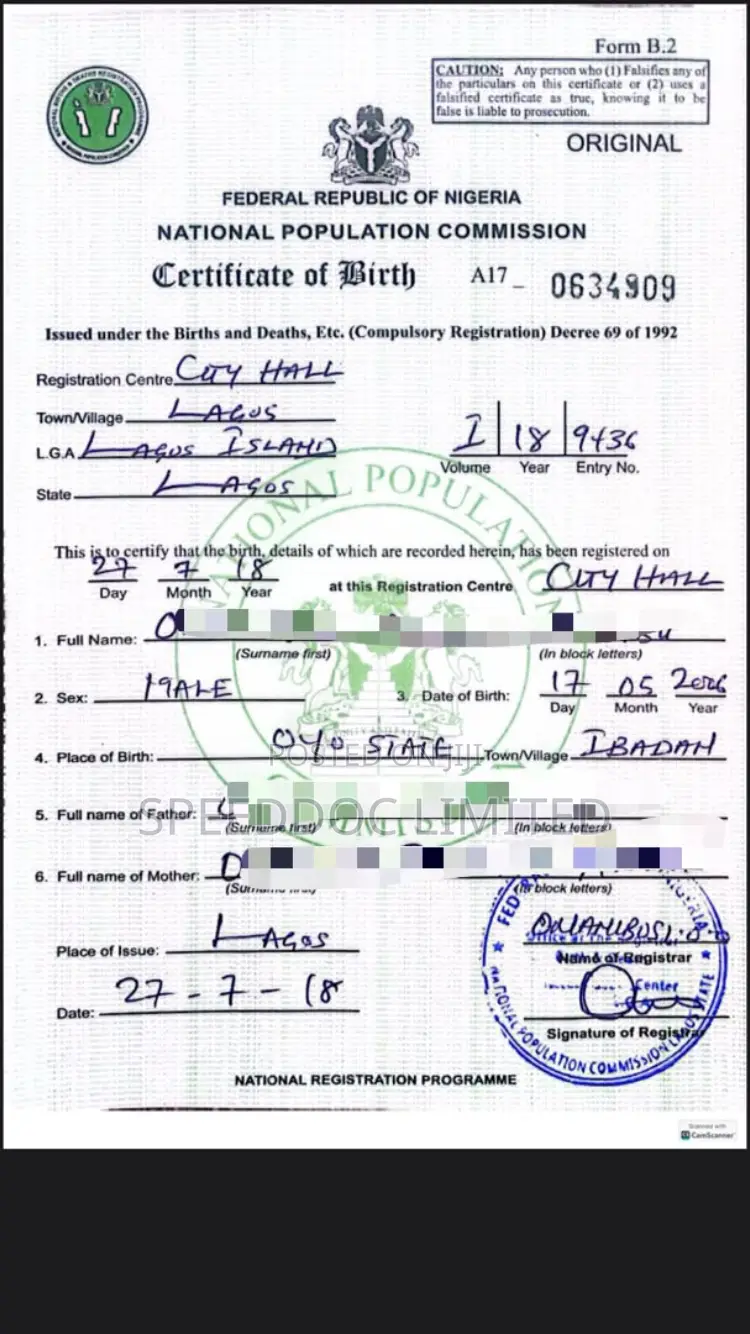 Form B.2
CAUTION: Any person who (1) Falsifies any of
the particulars on this certificate or (2) uses a
falsified certificate as true, knowing it to be
false is liable to prosecution.
ORIGINAL
FEDERAL REPUBLIC OF NIGERIA
NATIONAL POPULATION COMMISSION
Certificate of Birth A17_ 0634909
Issued under the Births and Deaths, Etc. (Compulsory Registration) Decree 69 of 1992
Registration Centre CITY HALL
Town/Village LAGOS
L.G.A LAGOS ISLAND
I 18 9436
Volume Year Entry No.
State LAGOS
NATIONAL POPULATION
This is to certify that the birth, details of which are recorded herein, has been registered on
27 7 18 at this Registration Centre CITY HALL
Day Month Year
1. Full Name: O
(Surname first) (In block letters)
2. Sex: MALE 3. Date of Birth: 17 05 2006
Day Month Year
4. Place of Birth: OYO STATE Town/Village IBADAN
POSTED ON JIJI
5. Full name of Father:
SPEEDDOC LIMITED
(Surname first) (In block letters)
6. Full name of Mother: O
(In block letters)
Place of Issue: LAGOS
Name of Registrar
Date: 27-7-18
Signature of Registrar
NATIONAL POPULATION COMMISSION LAGOS STATE
NATIONAL REGISTRATION PROGRAMME
Scanned with
CamScanner